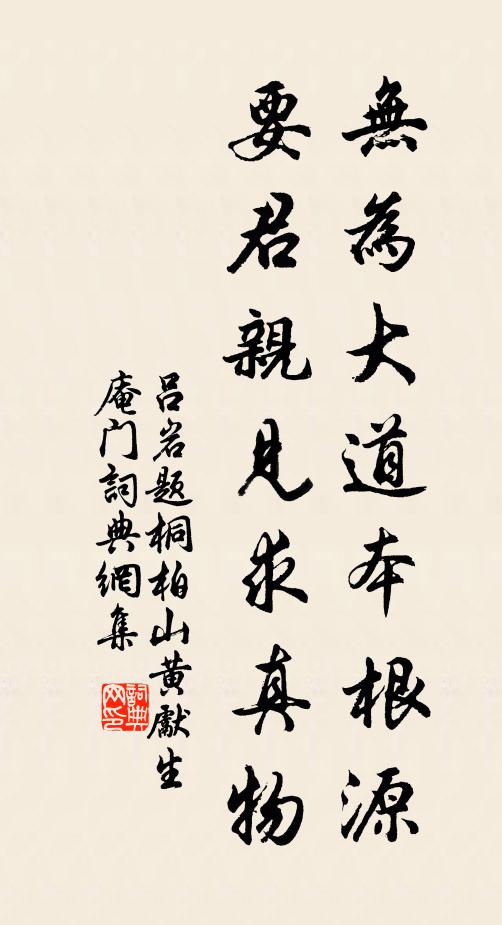 無為大道本根源
要君親見求真物
吕岩题桐柏山黄獻生
庵门詞典網集
詞典网印